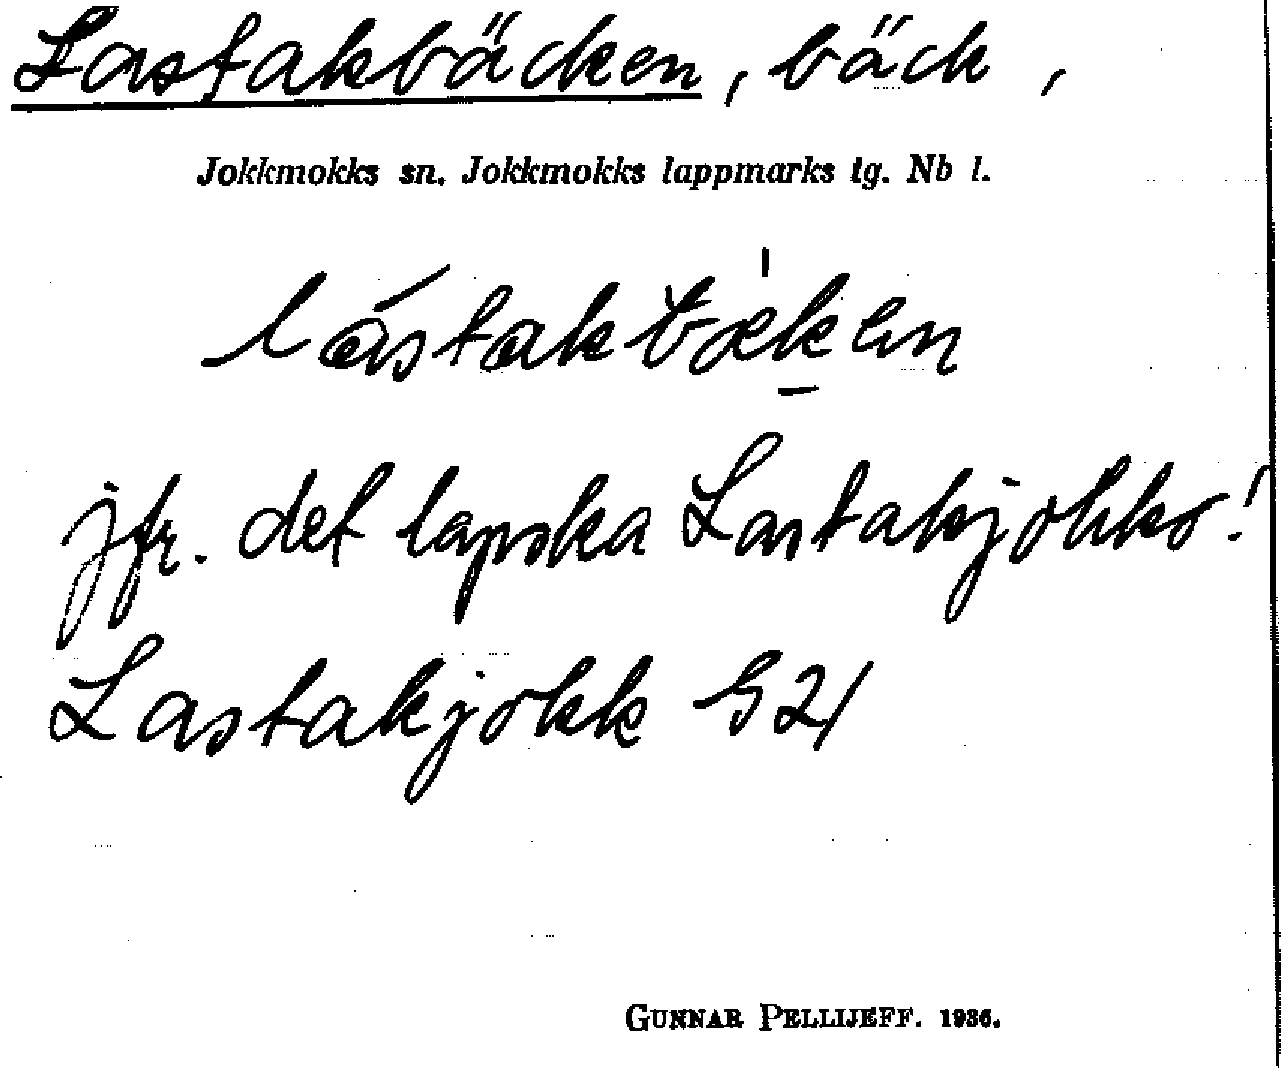 Lastakbäcken, bäck,
Jokkmokks sn. Jokkmokks lappmarks tg. Nb l.
lástakbæken
jfr. det lapska Lastakjokko!
Lastakjokk S 21
GUNNAR PELLIJEFF. 1936.